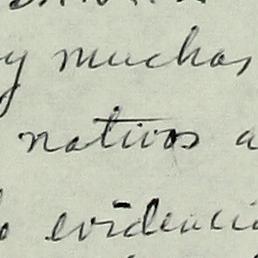 y muchas
nativos a
evidenci